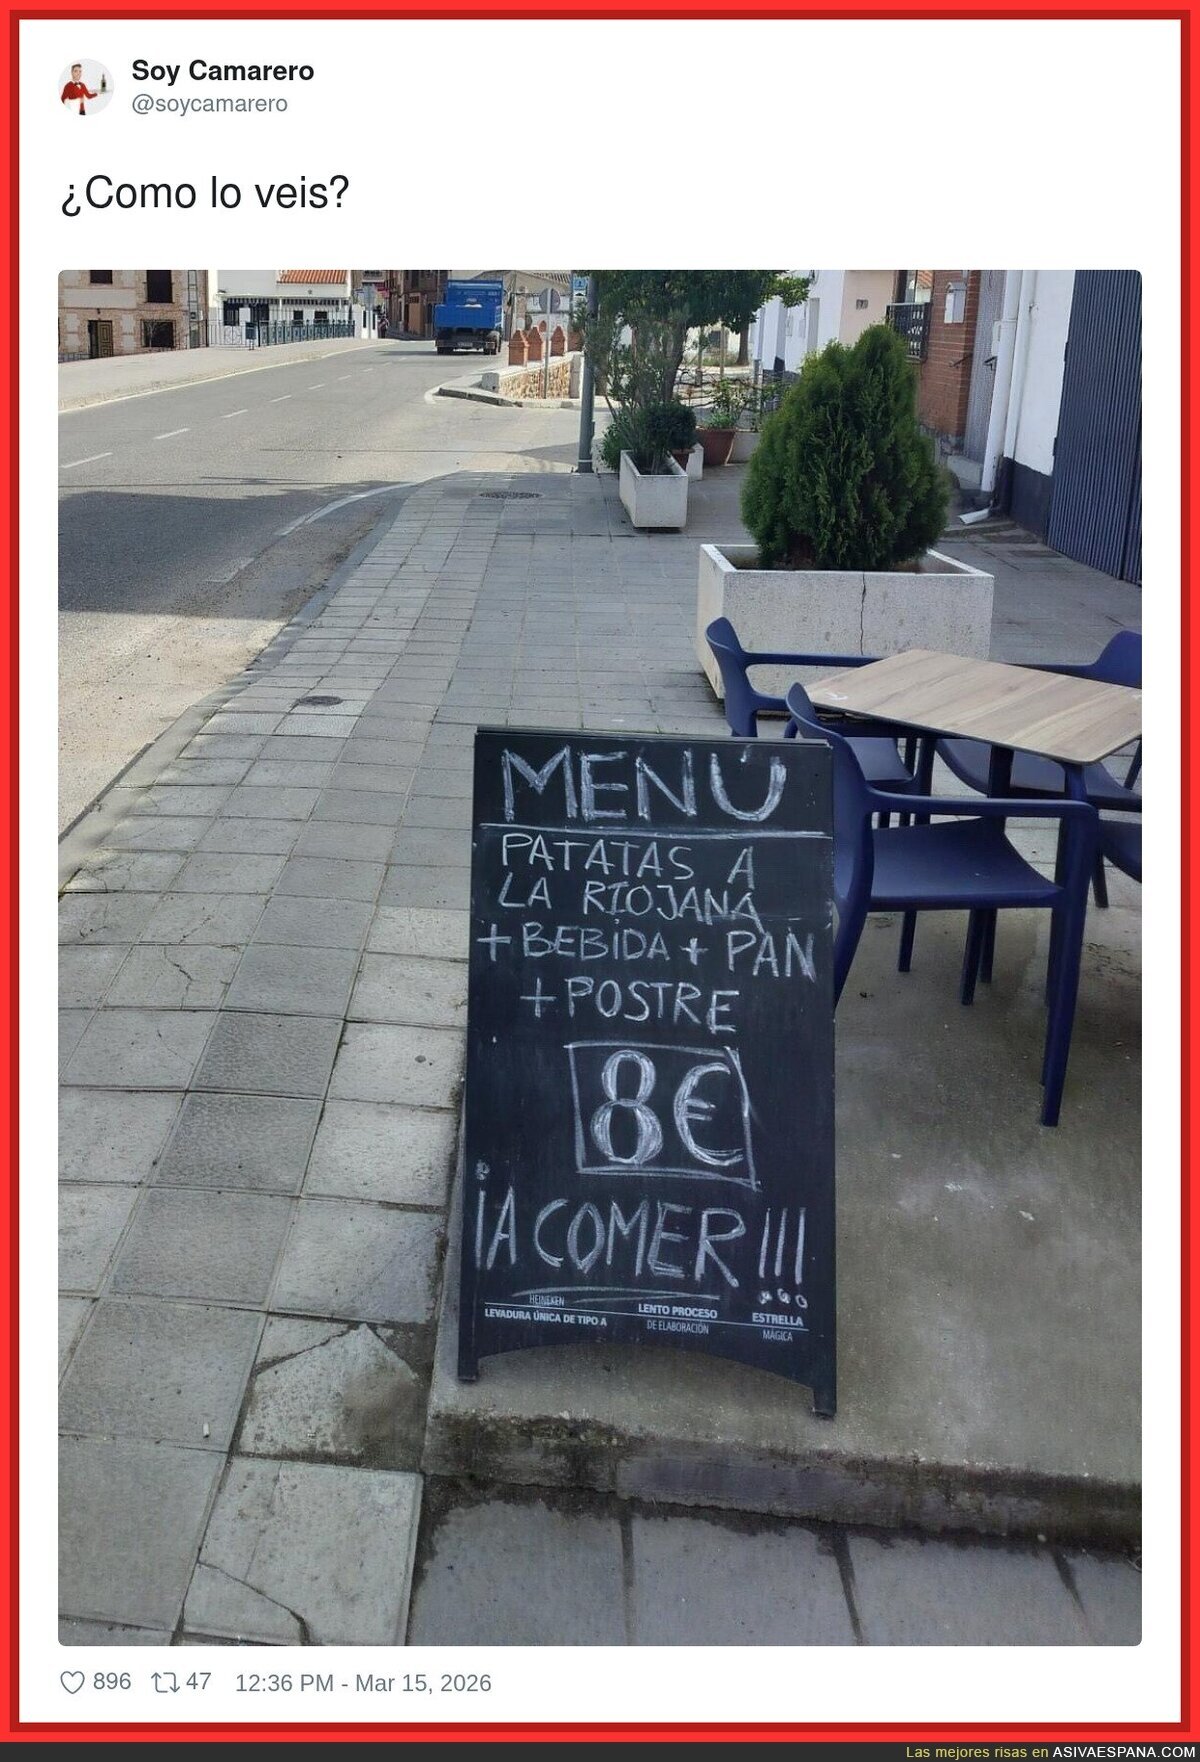 Soy Camarero
@soycamarero
¿Como lo veis?
MENÚ
PATATAS A
LA RIOJANA
+ BEBIDA + PAN
+ POSTRE
8€
¡A COMER!!!
HEINEKEN
LEVADURA ÚNICA DE TIPO A
LENTO PROCESO
DE ELABORACIÓN
ESTRELLA
MÁGICA
896 47 12:36 PM - Mar 15, 2026
Las mejores risas en ASIVAESPANA.COM